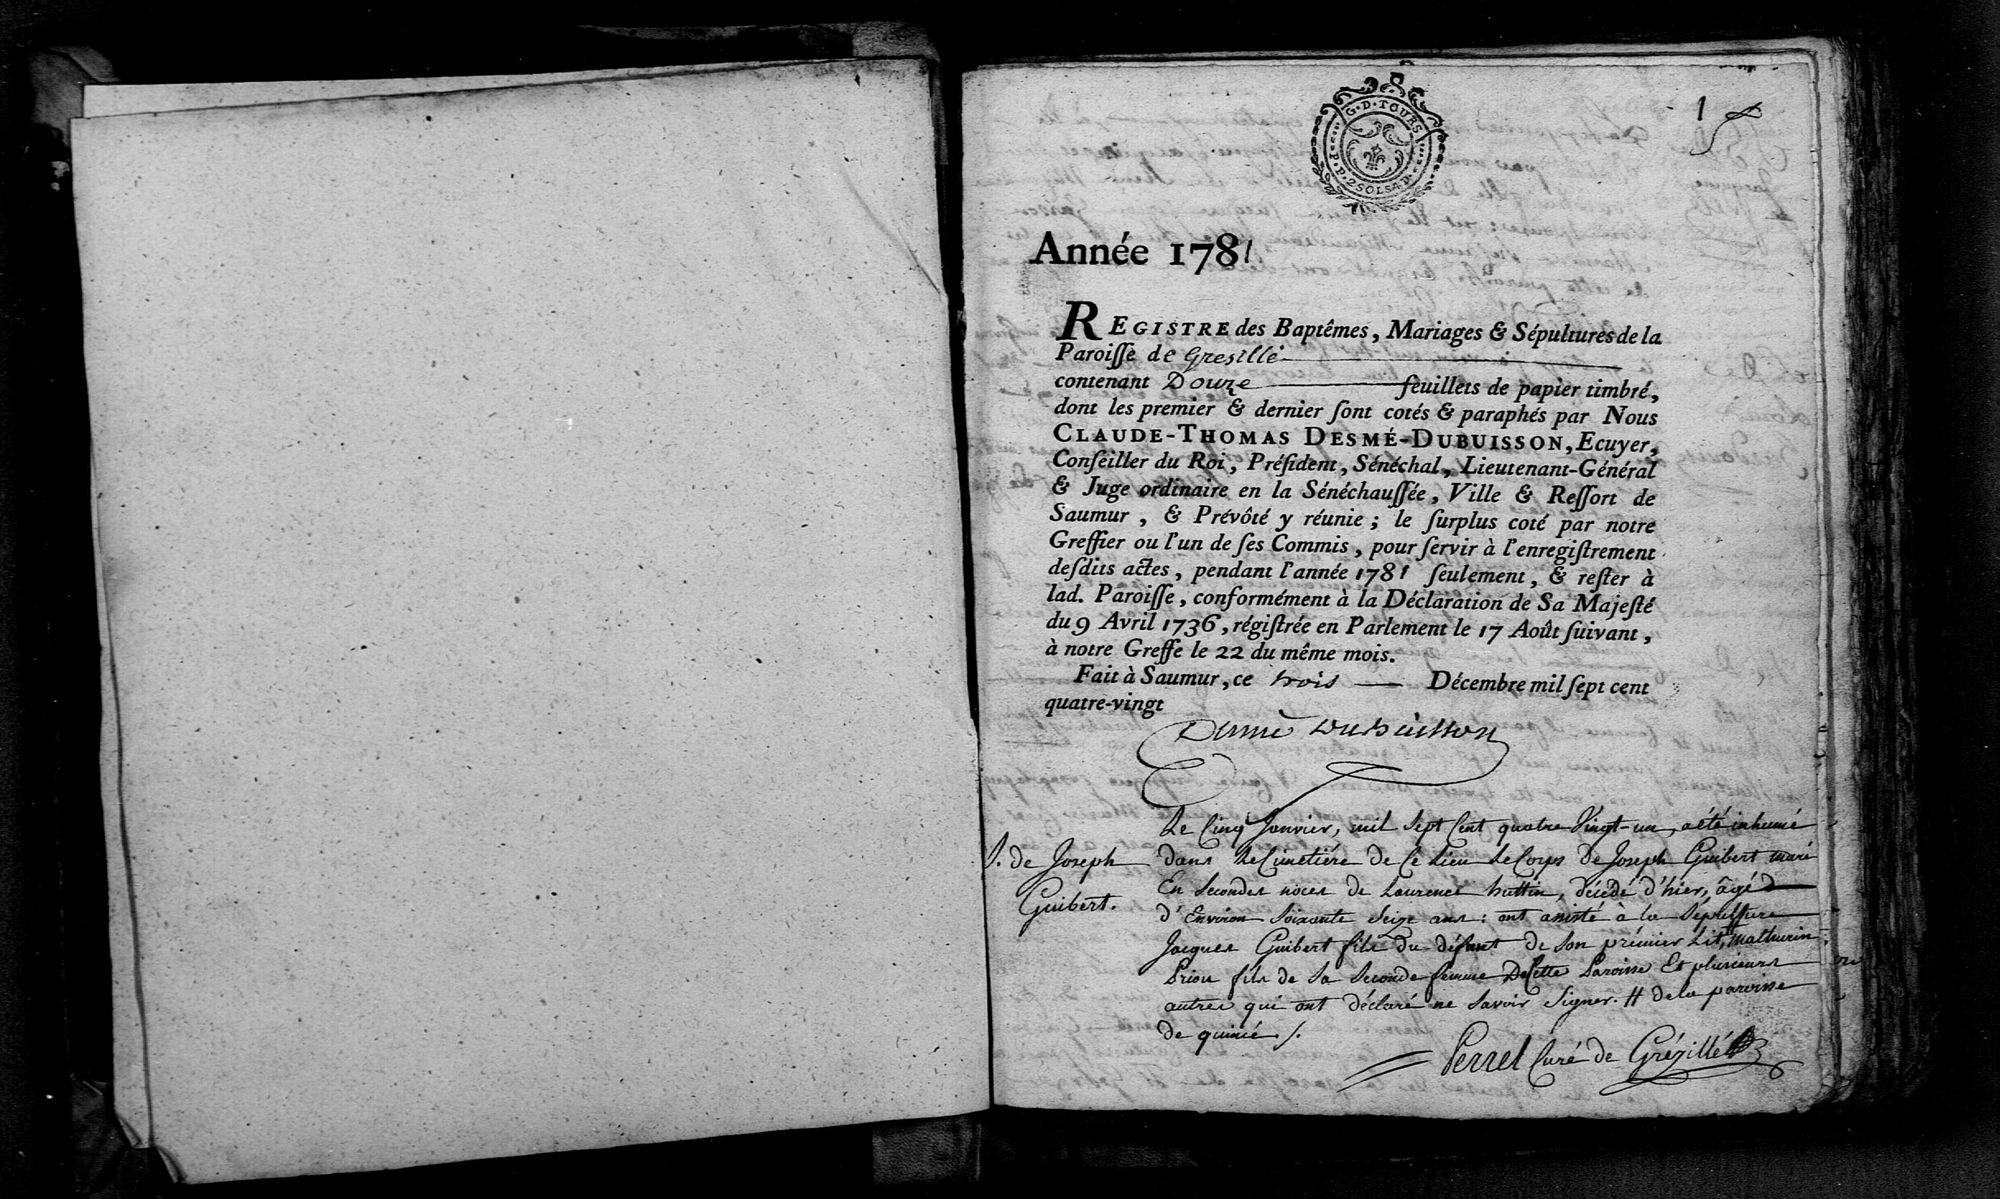 1
G·D·TOURS
P·P·2SOLS4D
Année 1781
REGISTRE des Baptêmes, Mariages & Sépultures de la
Paroiſſe de Gresillé
contenant Douze feuillets de papier timbré,
dont les premier & dernier ſont cotés & paraphés par Nous
CLAUDE-THOMAS DESMÉ-DUBUISSON, Ecuyer,
Conſeiller du Roi, Préſident, Sénéchal, Lieutenant-Général
& Juge ordinaire en la Sénéchauſſée, Ville & Reſſort de
Saumur, & Prévôté y réunie; le ſurplus coté par notre
Greffier ou l'un de ſes Commis, pour ſervir à l'enregiſtrement
deſdits actes, pendant l'année 1781 ſeulement, & reſter à
lad. Paroiſſe, conformément à la Déclaration de Sa Majeſté
du 9 Avril 1736, régiſtrée en Parlement le 17 Août ſuivant,
à notre Greffe le 22 du même mois.
Fait à Saumur, ce trois Décembre mil ſept cent
quatre-vingt
Desmé Dubuisson
Le Cinq Janvier, mil sept Cent quatre Vingt-un, a été inhumé
S. de Joseph dans Le Cimetiére de Ce Lieu Le Corps de Joseph Guibert marié
Guibert. En Secondes noces de Laurence huttin, décédé d'hier, âgé
d'Environ Soixante Seize ans: ont assisté à la Sépulture
Jacques Guibert fils du défunt de Son prémier Lit, # Mathurin
Priou fils de Sa Seconde femme De Cette Paroisse Et plusieurs
autres qui ont déclaré ne Savoir Signer. # de la paroisse
de quincé /.
Perrel Curé de Grézillé